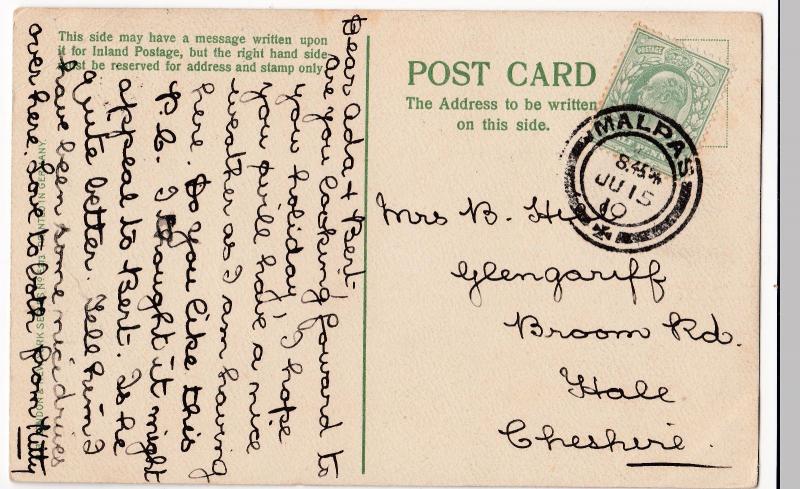 This side may have a message written upon
it for Inland Postage, but the right hand side
must be reserved for address and stamp only.
Dear Ada & Bert-
are you looking foward to
you holiday, I hope
you will have a nice
weather as I am having
here. Do you like this
P.C. I thought it might
appeal to Bert. Is he
quite better. Tell him I
have been some nice drives
over here. Love to both from Kitty
POST CARD
The Address to be written
on this side.
POSTAGE
MALPAS
8.45
JU 15
10
Mrs B. Hill
Glengariff
Broom Rd.
Hale
Cheshire.
PRINTED IN GERMANY.